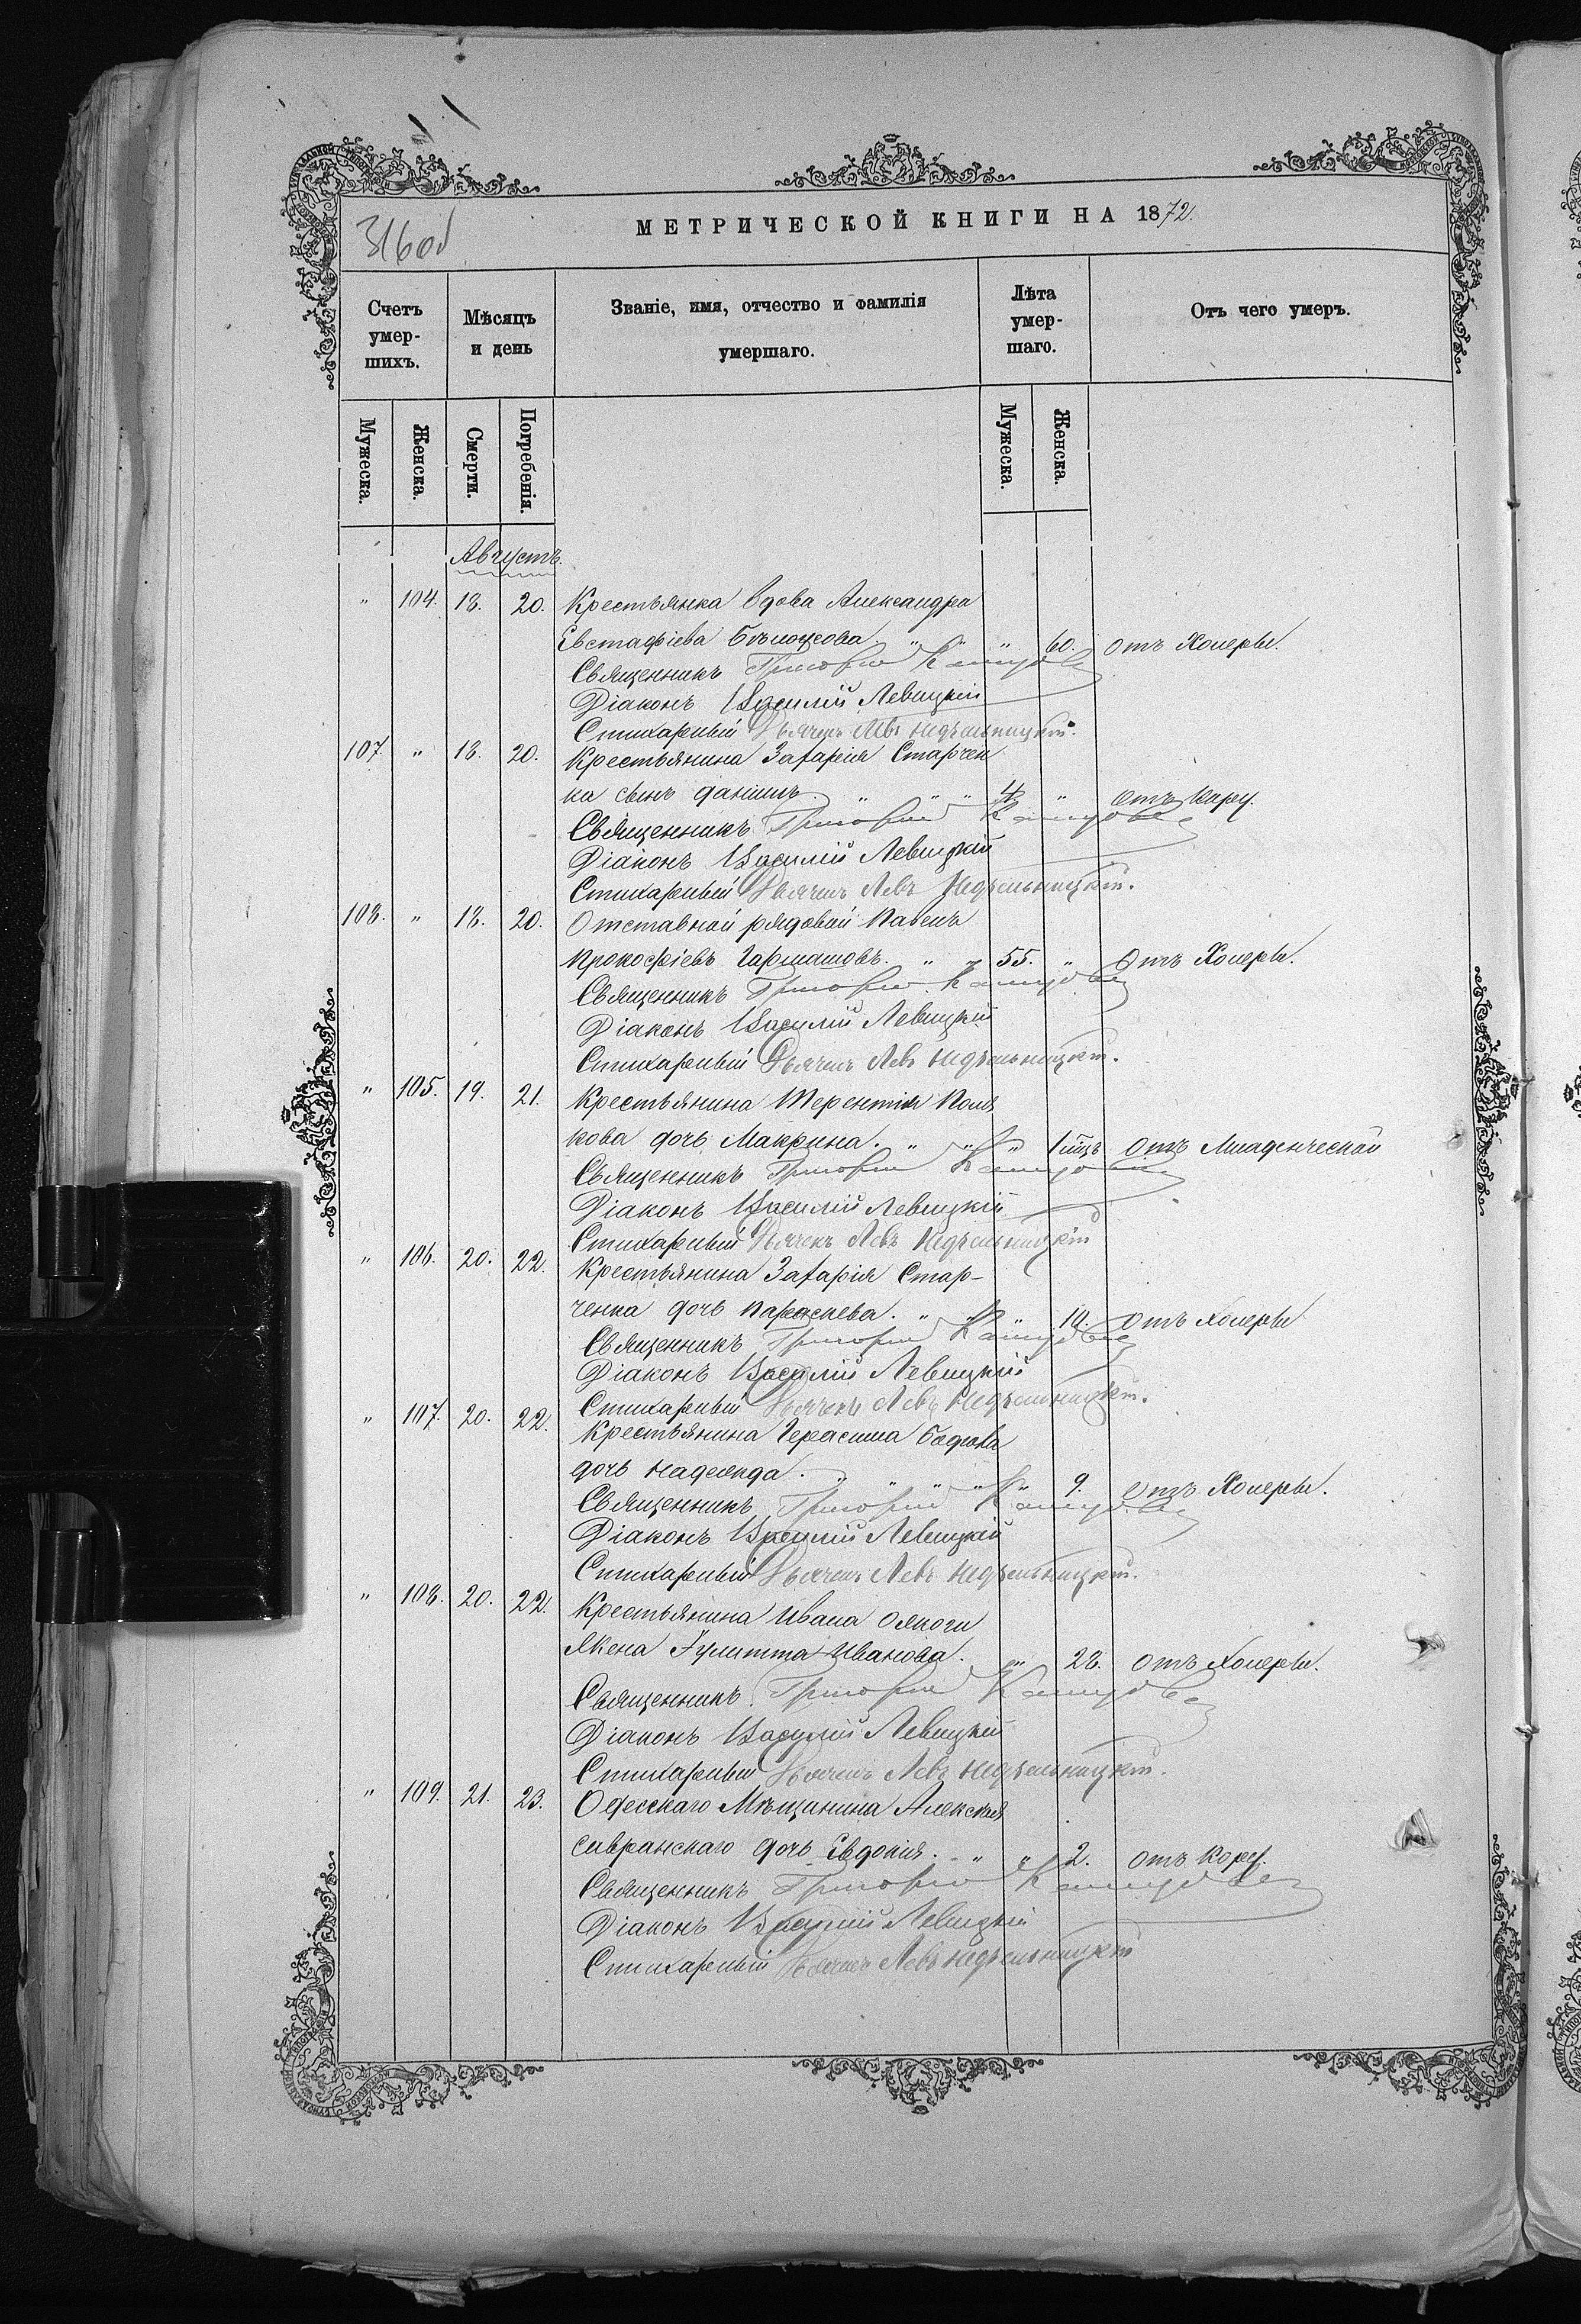 316 об
МЕТРИЧЕСКОЙ КНИГИ НА 1872.
Счетъ умершихъ.
Мѣсяцъ и день
Званіе, имя, отчество и фамилія умершаго.
Лѣта умершаго.
Отъ чего умеръ.
Мужеска. Женска. Смерти. Погребенія. Мужеска. Женска.
Августъ.
" 104. 18. 20. Крестьянка вдова Александра
Евстафіева Бѣлоусова. " " " 60. отъ Холеры.
Священникъ Григорій
Діаконъ Василій Левицкій
Стихарный Дьячекъ Левъ Недѣльницкій.
107. " 18. 20. Крестьянина Захарія Старчен
ка сынъ Даніилъ. " " " 4. " отъ Кору.
Священникъ Григорій
Діаконъ Василій Левицкій
Стихарный Дьячекъ Левъ Недѣльницкій.
108. " 18. 20. Отставной рядовой Павелъ
Прокофіевъ " 55. " Отъ Холеры.
Священникъ Григорій
Діаконъ Василій Левицкій
Стихарный Дьячекъ Левъ Недѣльницкій.
" 105. 19. 21. Крестьянина Терентія Поля
кова дочь Макрина. " " " 1 мцъ отъ Младенческой
Священникъ Григорій
Діаконъ Василій Левицкій
Стихарный Дьячекъ Левъ Недѣльницкій
" 106. 20. 22. Крестьянина Захарія Стар-
ченка дочь Параскева. " " " отъ Холеры
Священникъ Григорій
Діаконъ Василій Левицкій
Стихарный Дьячекъ Левъ Недѣльницкій.
" 107. 20. 22. Крестьянина Герасима
дочь Надежда. " " " " 9. отъ Холеры.
Священникъ Григорій
Діаконъ Василій Левицкій
Стихарный Дьячекъ Левъ Недѣльницкій.
" 108. 20. 22. Крестьянина Ивана
жена Іулитта Иванова. " 28. отъ Холеры.
Священникъ Григорій
Діаконъ Василій Левицкій
Стихарный Дьячекъ Левъ Недѣльницкій.
" 109. 21. 23. Одесскаго Мѣщанина Алексѣя
Савранскаго дочь Евдокія. " " 2. отъ Кору.
Священникъ Григорій
Діаконъ Василій Левицкій
Стихарный Дьячекъ Левъ Недѣльницкій